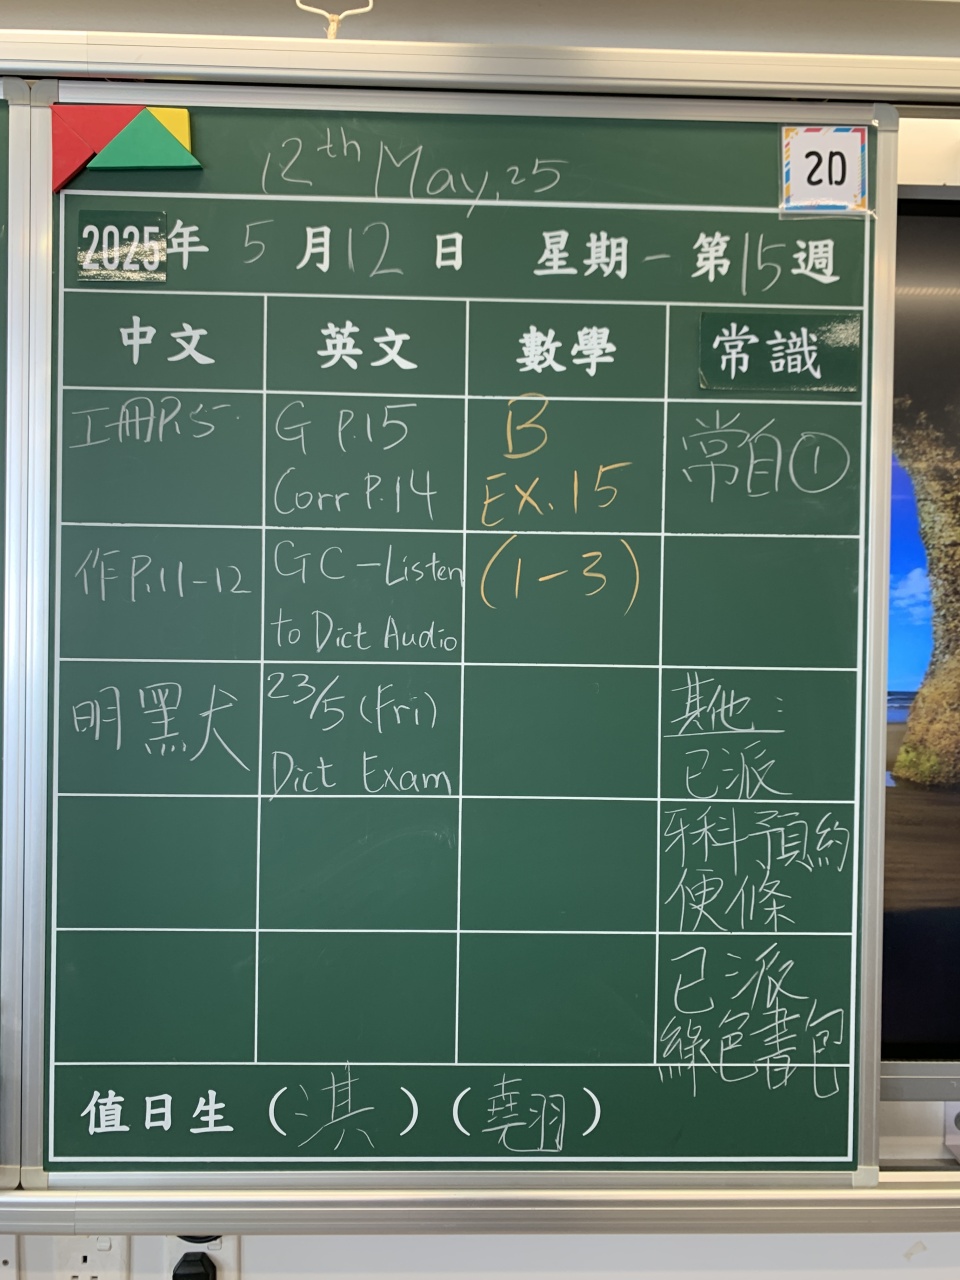 12th May, 25
2D
2025年 5月12日 星期一 第15週
中文 英文 數學 常識
工冊P.5
G P.15
Corr P.14
B
EX.15
常自①
作P.11-12
GC-Listen
to Dict Audio
(1-3)
明黑犬
23/5 (Fri)
Dict Exam
其他:
已派
牙科預約
便條
已派
綠色書包
值日生 (淇) (翹)